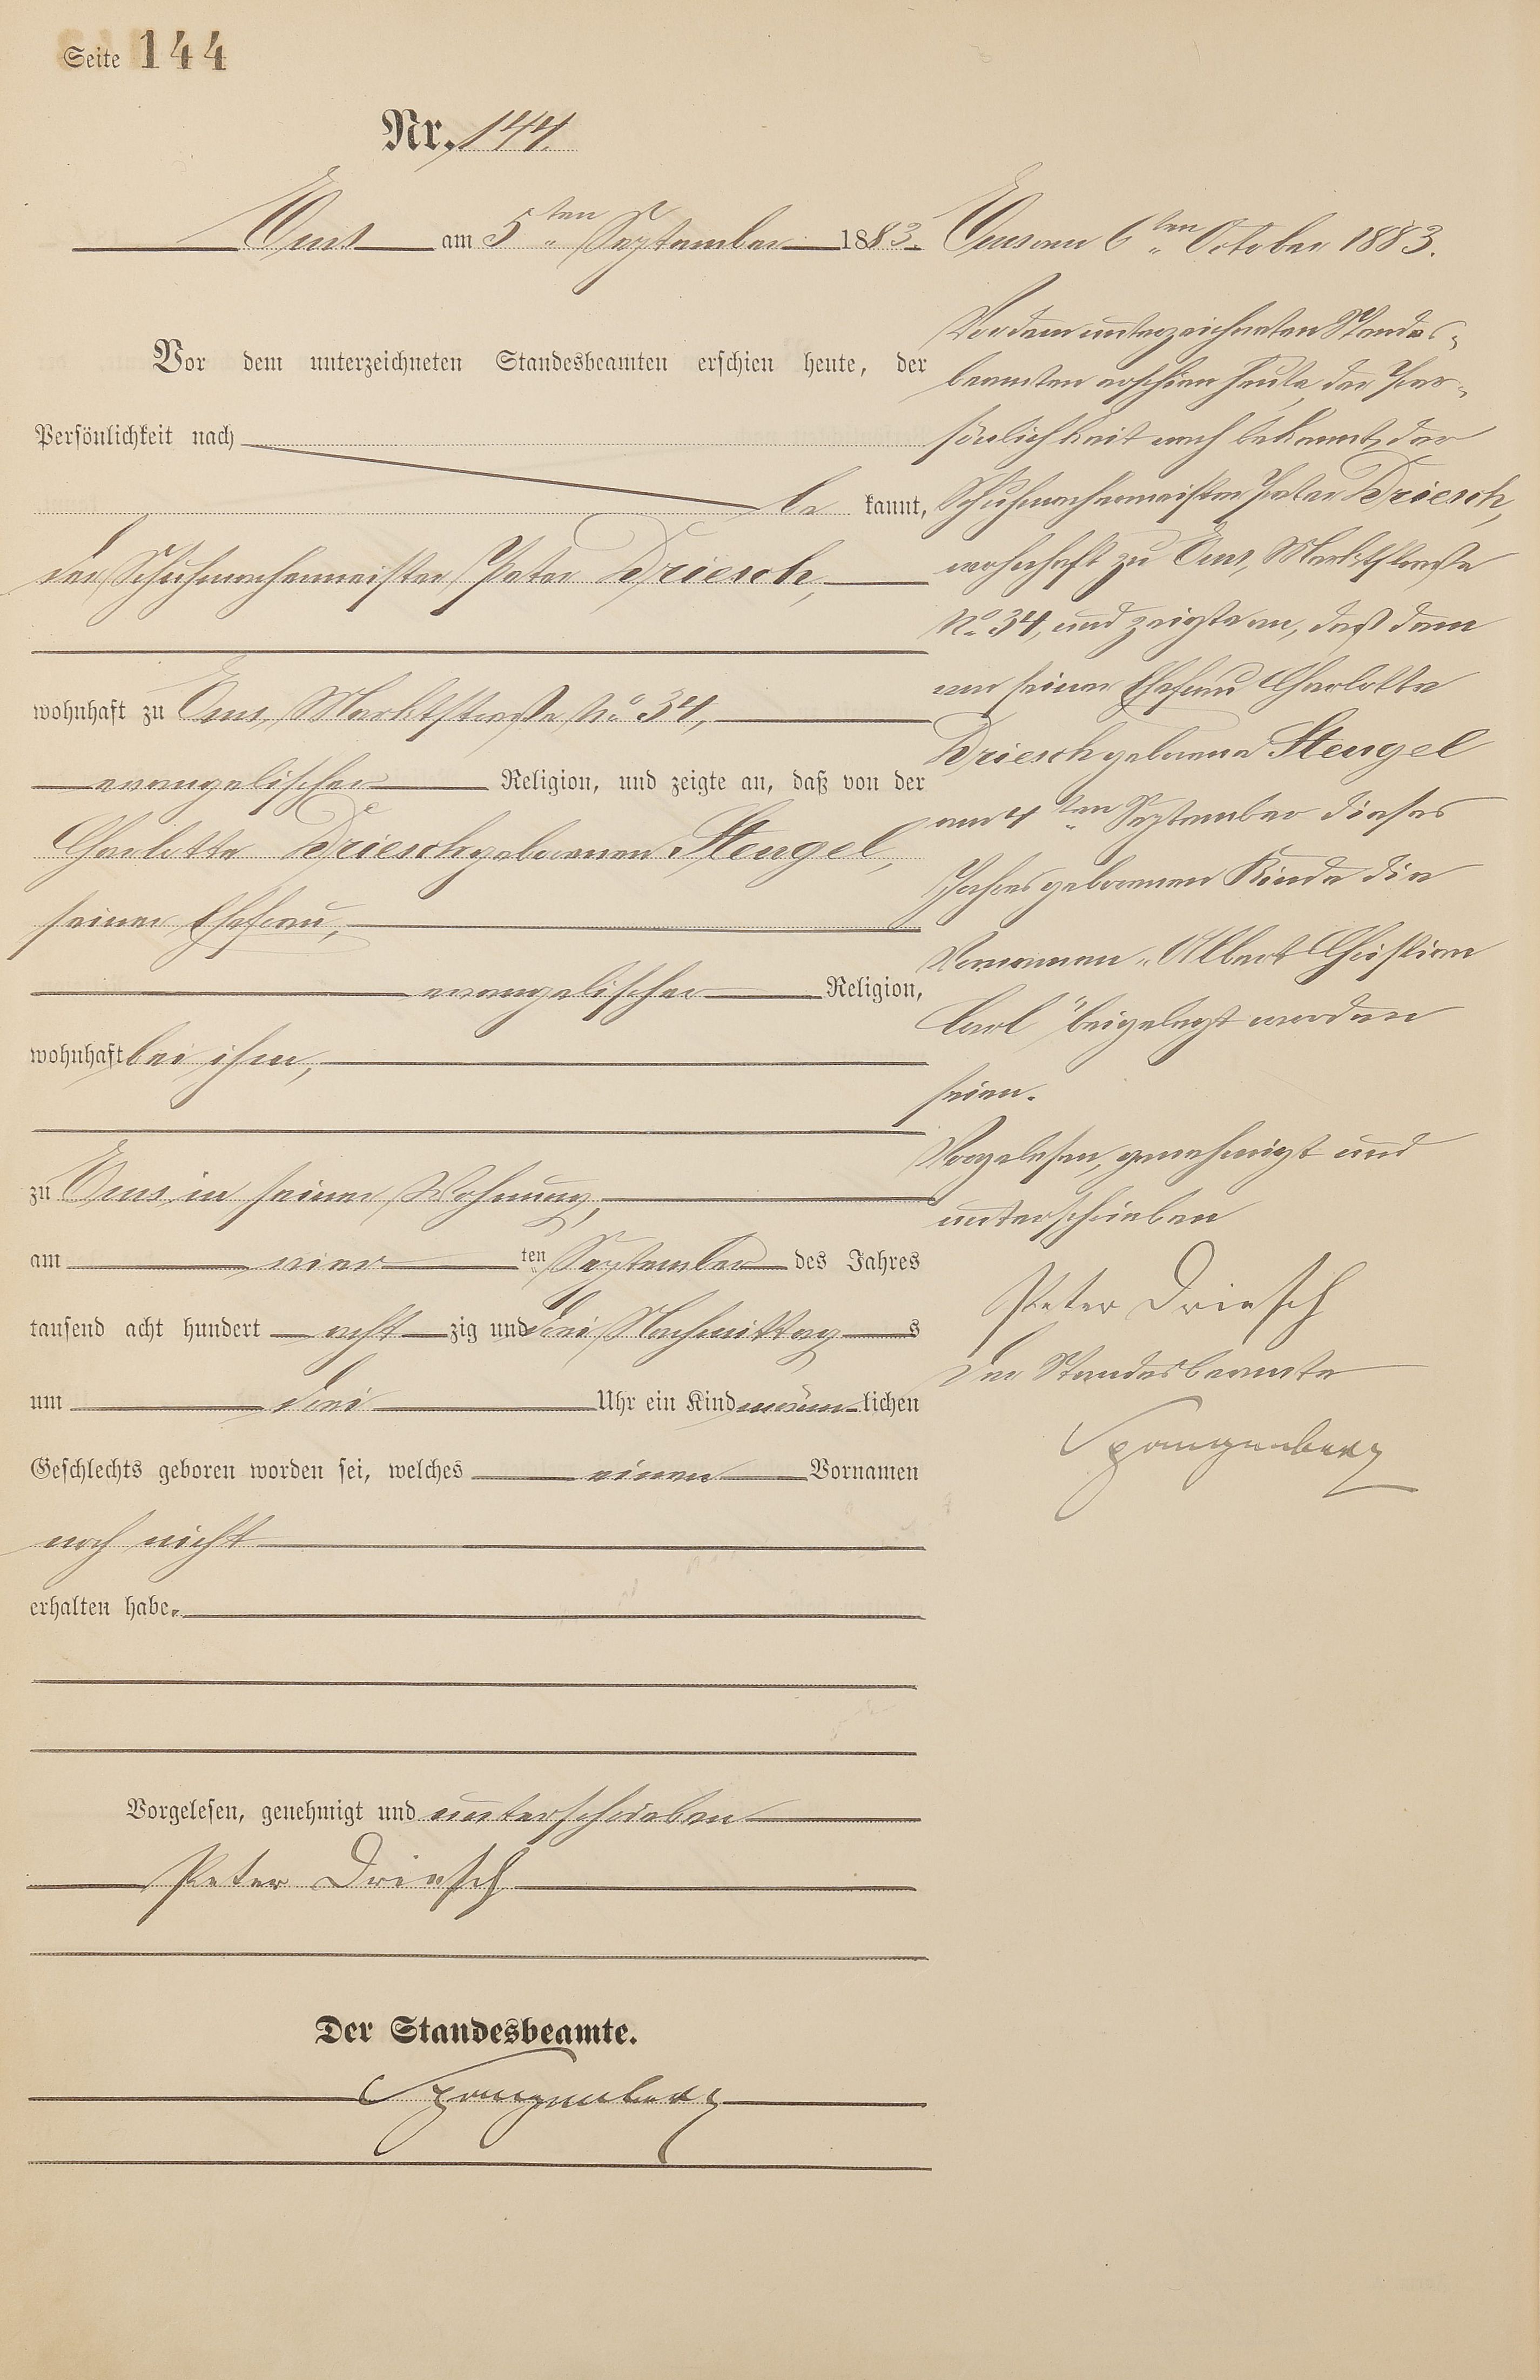 Seite 144
Nr. 144.
Ems am 5ten September 1883.
Vor dem unterzeichneten Standesbeamten erschien heute, der
Persönlichkeit nach
be kannt,
der Schuhmachermeister Peter Driesch,
wohnhaft zu Ems, Marktstraße No. 34,
evangelischer Religion, und zeigte an, daß von der
Charlotte Driesch geborenen Stengel,
seiner Ehefrau,
evangelischer Religion,
wohnhaft bei ihm,
zu Ems in seiner Wohnung,
am vier ten September des Jahres
tausend acht hundert acht zig und drei Nachmittag s
um drei Uhr ein Kind männ lichen
Geschlechts geboren worden sei, welches einen Vornamen
noch nicht
erhalten habe.
Vorgelesen, genehmigt und unterschrieben
Peter Driesch
Der Standesbeamte.
Spangenberg
Ems am 6ten October 1883.
Vor dem unterzeichneten Standes-
beamten erschien heute, der Per-
sönlichkeit nach bekannt, der
Schuhmachermeister Peter Driesch,
wohnhaft zu Ems, Marktstraße
No. 34, und zeigte an, daß dem
von seiner Ehefrau Charlotte
Driesch geborene Stengel
am 4ten September dieses
Jahres geborenen Kinde die
Vornamen „Albert Christian
Carl" beigelegt worden
seien.
Vorgelesen, genehmigt und
unterschrieben
Peter Driesch
Der Standesbeamte
Spangenberg